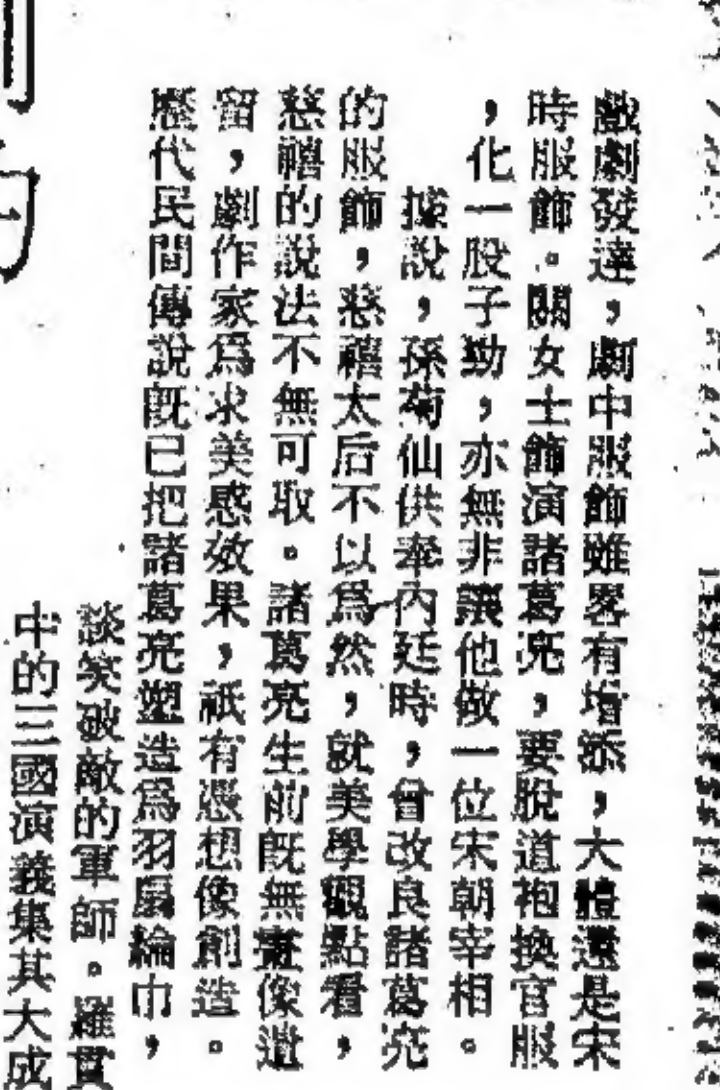 戲劇發達，劇中服飾雖畧有增添，大體還是宋
時服飾。關女士飾演諸葛亮，要脫道袍換官服
，化一股子勁，亦無非讓他做一位宋朝宰相。
據說，孫菊仙供奉內廷時，曾改良諸葛亮
的服飾，慈禧太后不以爲然，就美學觀點看，
慈禧的說法不無可取。諸葛亮生前既無畫像遺
留，劇作家爲求美感效果，祇有憑想像創造。
歷代民間傳說既已把諸葛亮塑造爲羽扇綸巾，
談笑破敵的軍師。羅貫
中的三國演義集其大成